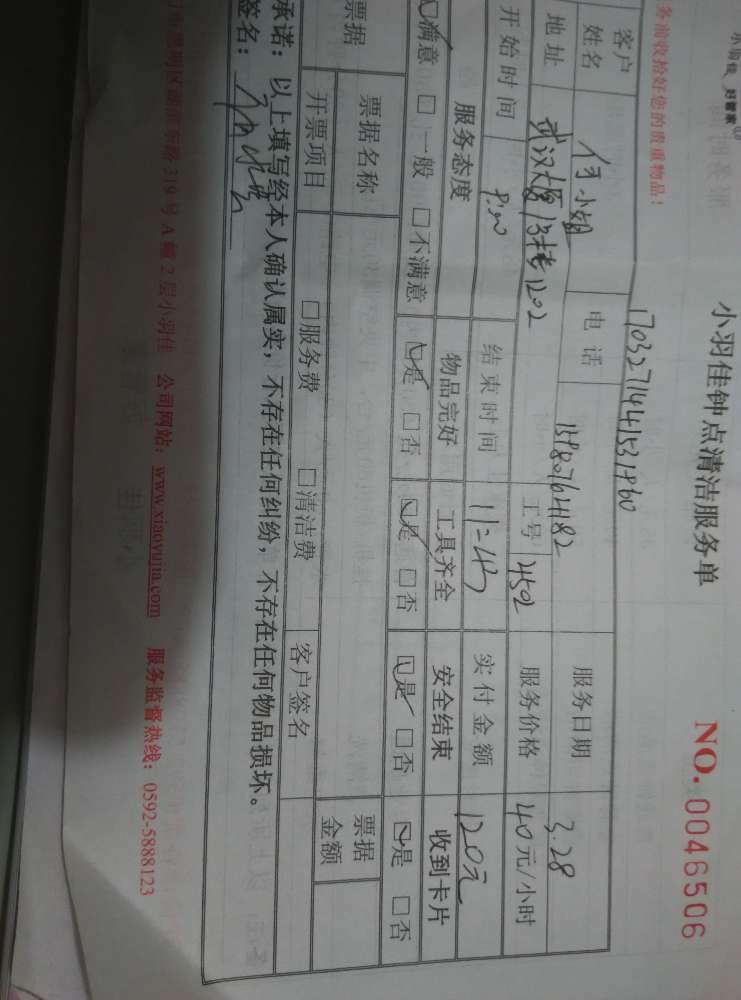 小羽佳 好管家
小羽佳钟点清洁服务单
NO. 0046506
务前收拾好您的贵重物品!
客户
姓名 何小姐 电话 服务日期 3.28
地址 13栋1202 工号 4502 服务价格 40元/小时
开始时间 结束时间 实付金额 120元
服务态度 物品完好 工具齐全 安全结束 收到卡片
☑满意 □一般 □不满意 ☑是 □否 ☑是 □否 ☑是 □否 ☑是 □否
票据 票据名称 票据金额
开票项目 □服务费 □清洁费 客户签名
承诺:以上填写经本人确认属实,不存在任何纠纷,不存在任何物品损坏。
签名:
319号A幢2层小羽佳 公司网站:www.xiaoyujia.com 服务监督热线:0592-5888123